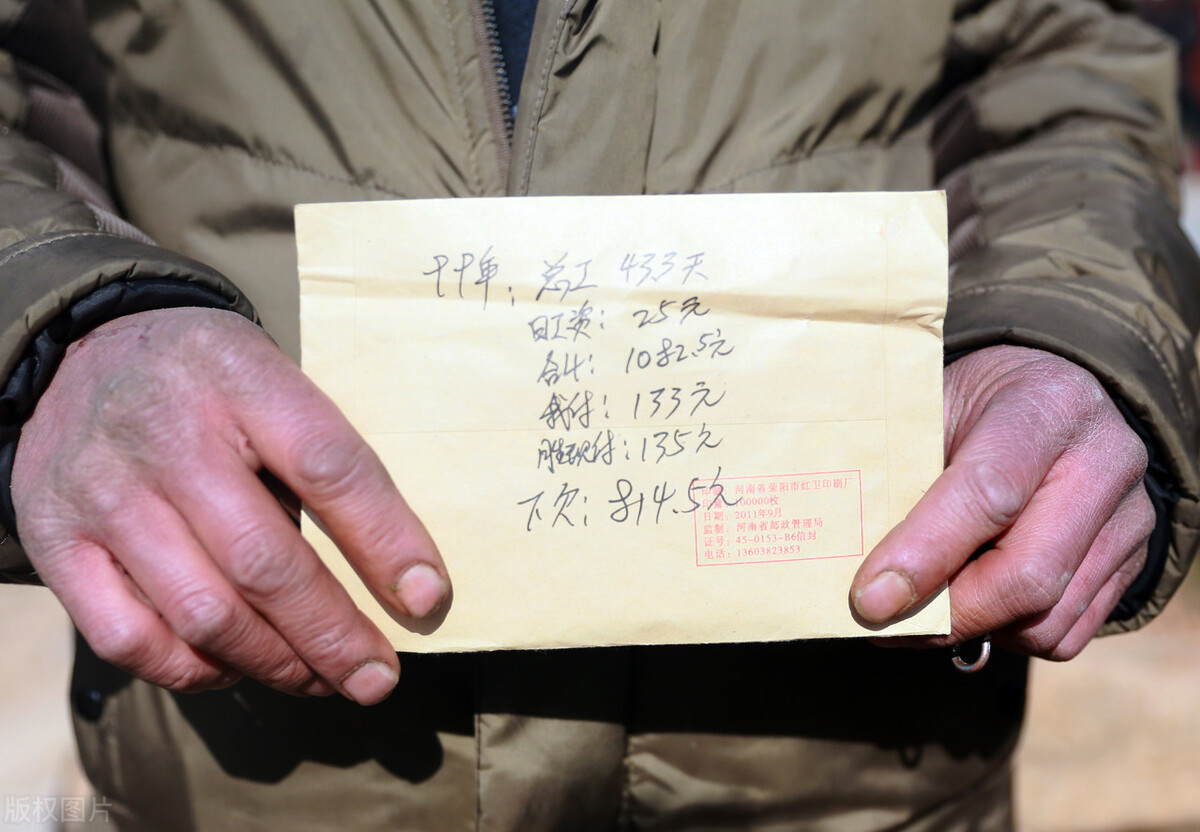 总工 43.3天
日工资：25元
合计：1082.5元
我付：133元
现付：135元
下欠：814.5元
河南省荥阳市红卫印刷厂
00000枚
日期：2011年9月
监制：河南省邮政管理局
证号：45-0153-B6信封
电话：13603823853
版权图片